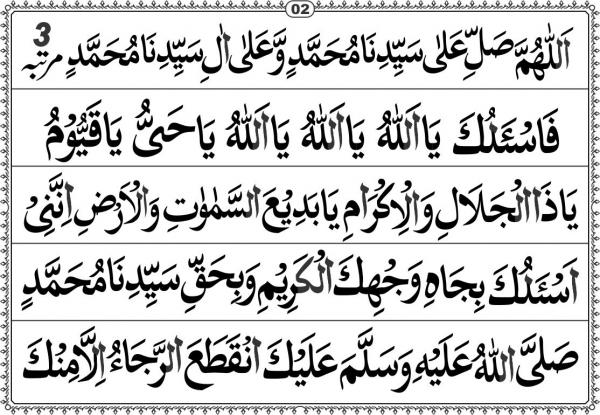 02
اَللّٰهُمَّ صَلِّ عَلٰى سَيِّدِنَا مُحَمَّدٍ وَّعَلٰى اٰلِ سَيِّدِنَا مُحَمَّدٍ 3 مرتبہ
فَاَسْئَلُكَ يَا اَللّٰهُ يَا اَللّٰهُ يَا اَللّٰهُ يَا حَىُّ يَا قَيُّوْمُ
يَا ذَا الْجَلَالِ وَالْاِكْرَامِ يَا بَدِيْعَ السَّمٰوٰتِ وَالْاَرْضِ اِنَّنِىْ
اَسْئَلُكَ بِجَاهِ وَجْهِكَ الْكَرِيْمِ وَبِحَقِّ سَيِّدِنَا مُحَمَّدٍ
صَلَّى اللّٰهُ عَلَيْهِ وَسَلَّمَ عَلَيْكَ انْقَطَعَ الرَّجَاءُ اِلَّا مِنْكَ